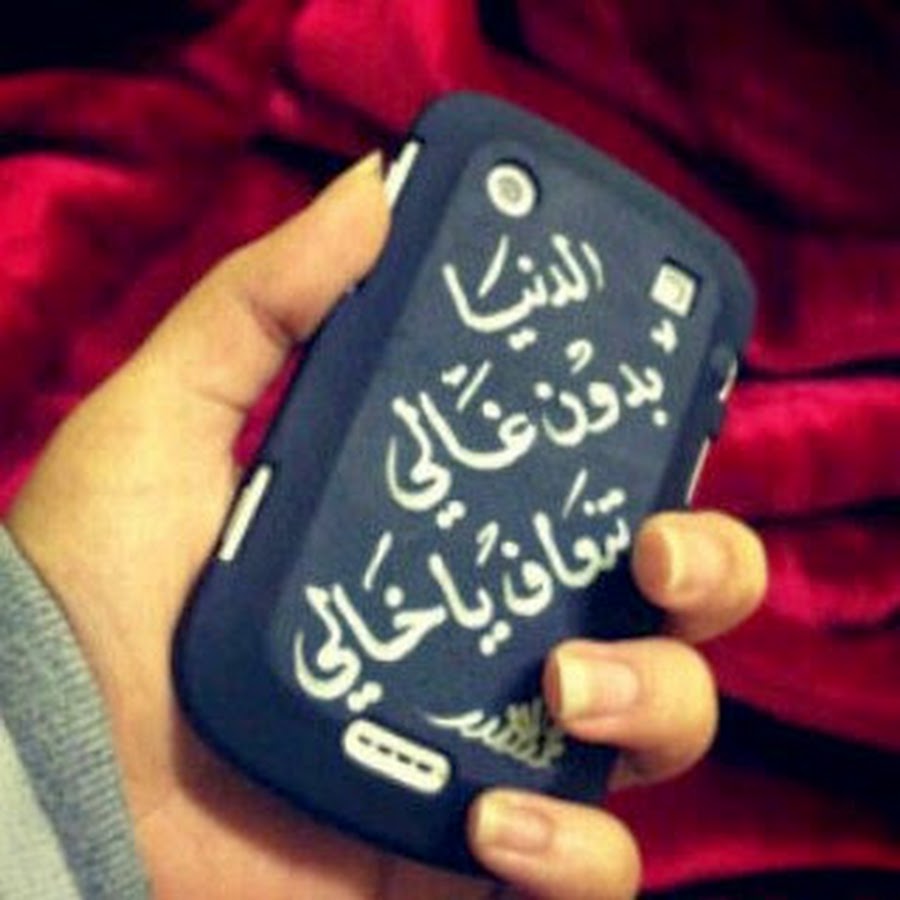 الدنيا
بدون غالي
تنعاف ياخالي